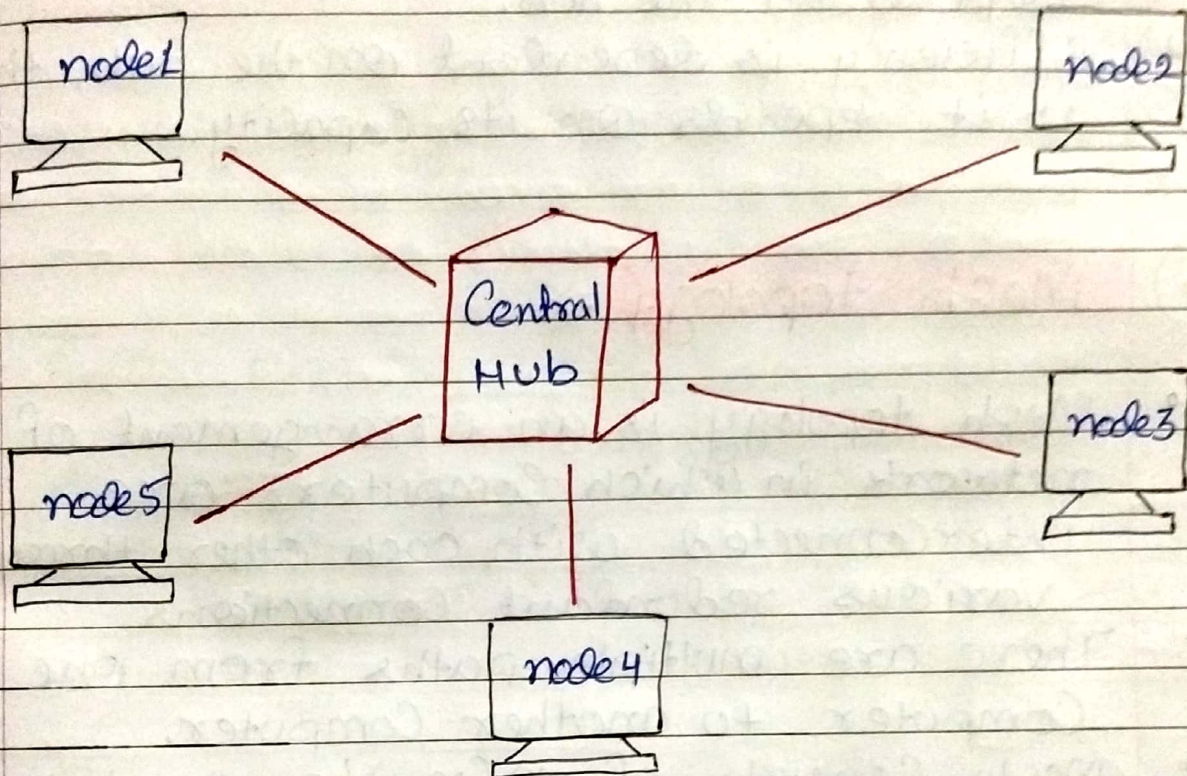 node1
node2
Central
Hub
node3
node5
node4